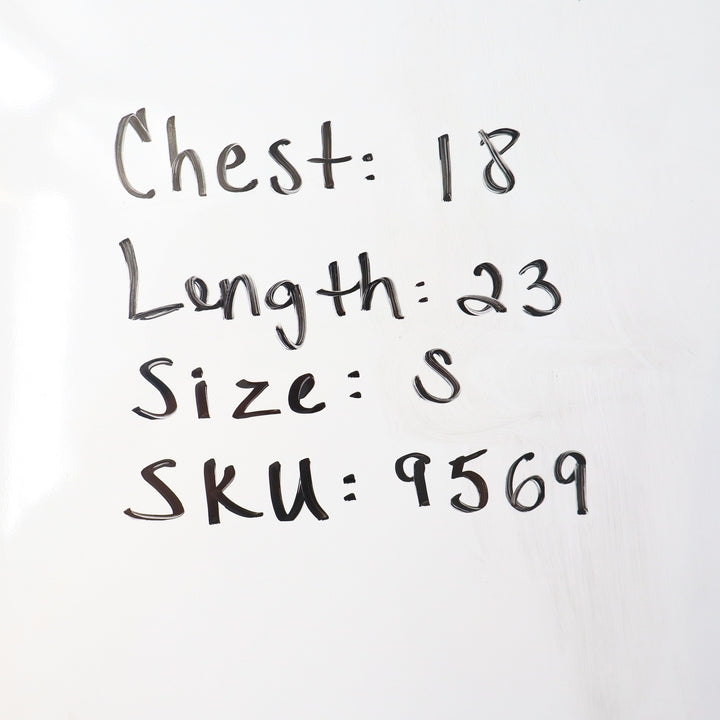 Chest: 18
Length: 23
Size: S
SKU: 9569